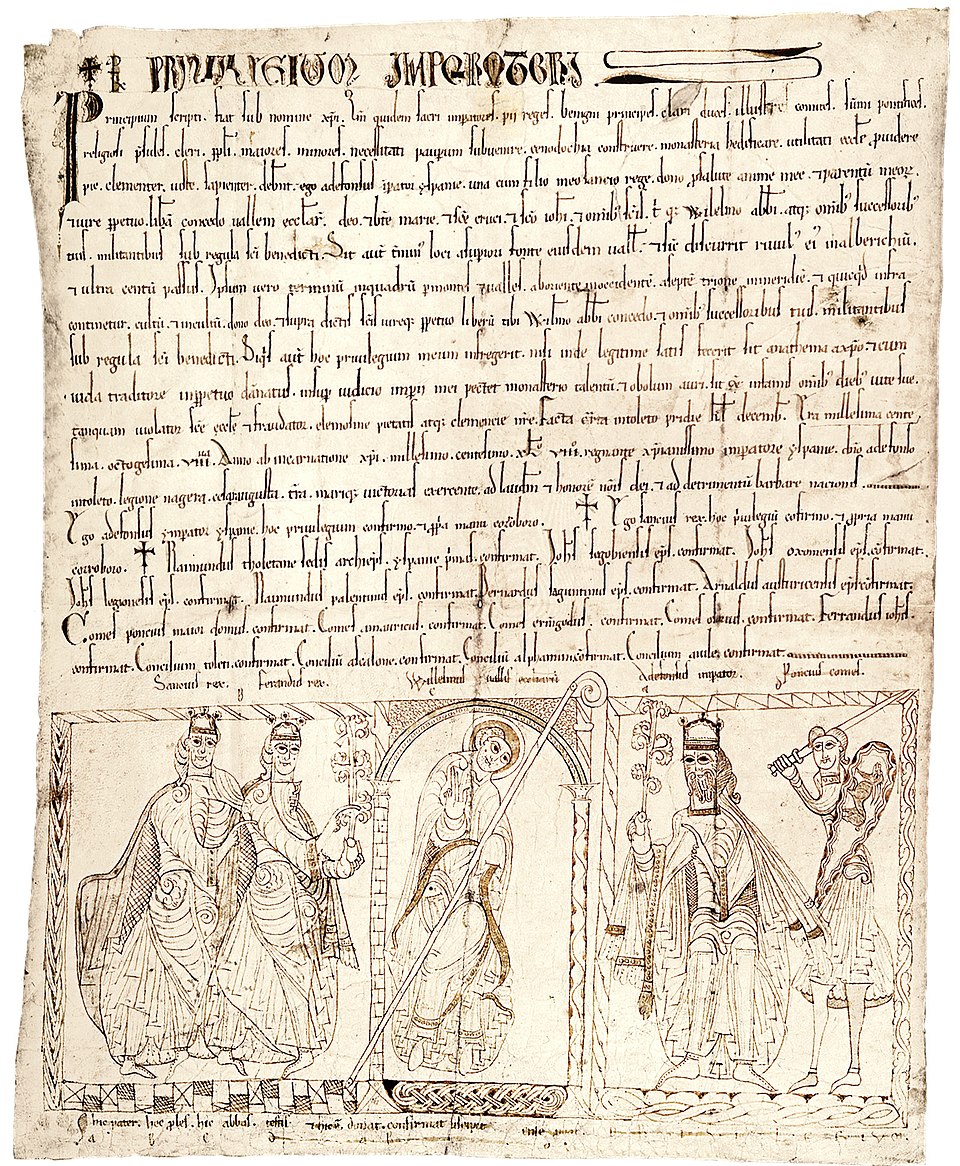 PRIVILEGIUM IMPERATORIS
Principium scripti fiat sub nomine xpi. Cum quidem sacri impatores. pii reges. benigni principes. clari duces. illustres comites. sumi pontifices.
religiosi psules. cleri. ppli. maiores. minores. necessitati paupum subvenire. cenodochia construere. monasteria hedificare. utilitati eccle. pvidere
pie. clementer. iuste. sapienter. debint. ego adefonsus ipator yspanie. una cum filio meo sancio rege. dono psalute anime mee. & parentu meor.
& iure ppetuo. libam concedo vallem ecclar. deo. & bte marie. & sce cruci. & sco iohi. & omib scis. t q. Wilelmo abbi. atq. omib successorib
tuis. militantibus sub regula sci benedicti. Sit aut loci asupiori fonte eiusdem vall. & sic discurrit rivul ei inalberichiu.
& ultra centu passus. Ipsum vero terminu inquadru pmontes & valles. aboriente inoccidente. aseptetrione inmeridie. & quicqd infra
continetur. cultu. & incultu. dono deo. & supra dictis scis iureq. ppetuo liberu tibi Wilmo abbi concedo. & omib successoribus tuis. militantibus
sub regula sci benedicti. Siqs aut hoc privilegium meum infregerit. nisi inde legitime satis fecerit sit anathema axpo & cum
iuda traditore inppetuo danatus. insup iudicio impii mei pectet monasterio talentu. & obolum auri. sit infamis omib dieb vite sue.
tanquam violator sce eccle & fraudator. elemosine pietatis atq. clemencie nre. Facta carta intoleto pridie kl decemb. Era millesima cente
sima. octogesima. viiii. Anno ab incarnatione xpi. millesimo. centesimo. xl viii. regnante xpianissimo impatore yspanie. dno adefonso
intoleto. legione nagera. cesaraugusta. tra. mariq. victorias exercente. ad laudem & honore nois dei. & ad detrimentu barbare nacionis.
Ego adefonsus yspator yspanie. hoc privilegium confirmo. & ppa manu coroboro. Ego sancius rex. hoc pvilegiu cofirmo. & ppria manu
corroboro. Raimundus tholetane sedis archieps. yspanie pmas. confirmat. Iohs segobiensis eps. confirmat. Iohs oxomensis eps. cofirmat.
Iohs legionensis eps. confirmat. Raimundus palentinus eps. confirmat. Bernardus saguntinus eps. confirmat. Arnaldus austuricensis eps confirmat.
Comes poncius maior domus. confirmat. Comes amauricus. confirmat. Comes ermigodus. confirmat. Comes osorius. confirmat. Ferrandus iohis.
confirmat. Concilium toleti. confirmat. Conciliu dealcone. confirmat. Conciliu alphamin. confirmat. Concilium avile. confirmat.
Sancius rex. Ferandus rex. Willelmus vallis Adefonsus impator. Poncius comes.
b c a
hic pater. hoc ples. hic abbas. testis
a b c d